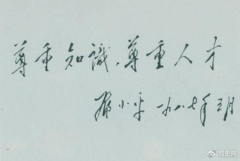 尊重知識,尊重人才
邓小平 一九八七年三月